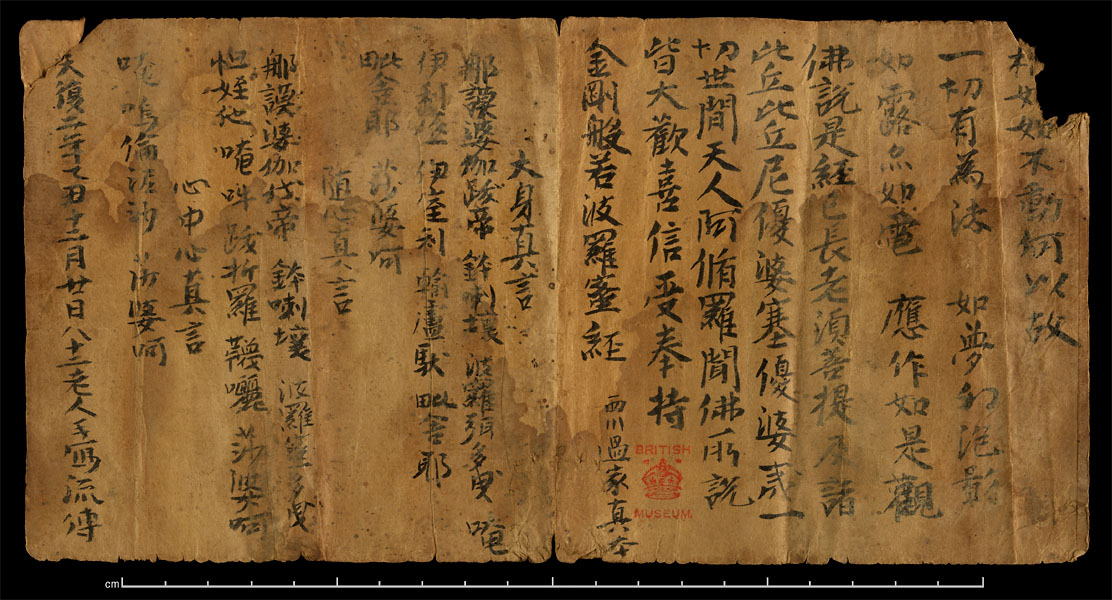 相如如不動何以故
一切有為法　如夢幻泡影
如露亦如電　應作如是觀
佛説是經已長老須菩提及諸
比丘比丘尼優婆塞優婆夷一
切世間天人阿脩羅聞佛所説
皆大歡喜信受奉持
金剛般若波羅蜜經
西川過家真本
大身真言
那謨婆伽跋帝　鉢喇壤　波羅弭多曳　唵
伊利底　伊室利　輸盧馱　毗舍耶
毗舍耶　莎婆訶
隨心真言
那謨婆伽伐帝　鉢喇壤　波羅蜜多曳
怛姪他　唵吽　跋折羅　莎婆訶
心中心真言
唵　嗚倫泥沙　莎婆訶
天復二年丁丑十二月廿日八十二老人手寫流傳
BRITISH
MUSEUM
cm